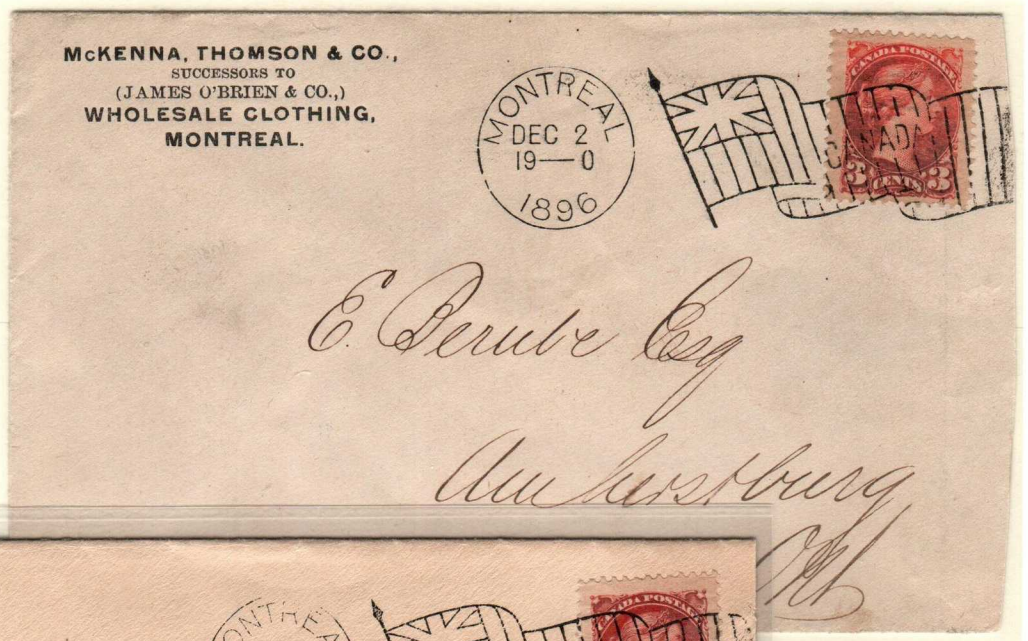 McKENNA, THOMSON & CO.,
SUCCESSORS TO
(JAMES O'BRIEN & CO.,)
WHOLESALE CLOTHING,
MONTREAL.
MONTREAL
DEC 2
19—0
1896
CANADA POSTAGE
CANADA
3 CENTS 3
E. Berube Esq
Amherstburg
Ont
MONTREAL
CANADA POSTAGE